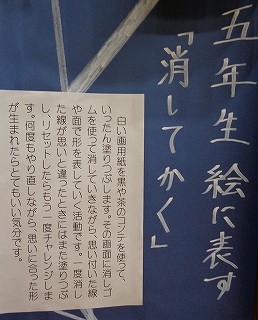 五年生 絵に表す
「消してかく」
白い画用紙を黒や茶のコンテを使って、
いったん塗りつぶします。その画面に消しゴ
ムを使って消していきながら、思い付いた線
や面で形を表していく活動です。一度消し
た線が思いと違ったときにはまた塗りつぶ
し、リセットしたらもう一度チャレンジしま
す。何度もやり直しながら、思いに合った形
が生まれたらとてもいい気分です。